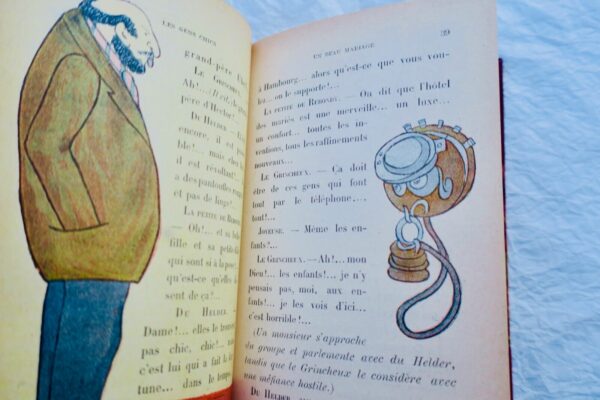 LES GENS CHICS
grand-père
LE GRINCHEUX.
Ah!...
père d'Helder!
DU HELDER.
encore, il est
ble!... mais chez
il est révoltant
a des pantoufles
et pas de linge!
LA PETITE DE
— Oh!... et sa
fille et sa petite
qui sont si à la pose!
qu'est-ce qu'elles
sent de ça?...
DU HELDER. —
Dame!... elles le trouvent
pas chic, chic!...
c'est lui qui a fait la
tune... dans le temps
UN BEAU MARIAGE
39
à Hambourg... alors qu'est-ce que vous vou-
lez... on le supporte!...
LA PETITE DE — On dit que l'hôtel
des mariés est une merveille... un luxe...
un confort... toutes les in-
ventions, tous les raffinements
nouveaux...
LE GRINCHEUX. — Ça doit
être de ces gens qui font
tout par le téléphone...
tout!...
JOYEUSE. — Même les en-
fants?...
LE GRINCHEUX. — Ah!... mon
Dieu!... les enfants!... je n'y
pensais pas, moi, aux en-
fants!... je les vois d'ici...
c'est horrible!...
(Un monsieur s'approche
du groupe et parlemente avec du Helder,
tandis que le Grincheux le considère avec
une méfiance hostile.)
DU HELDER,